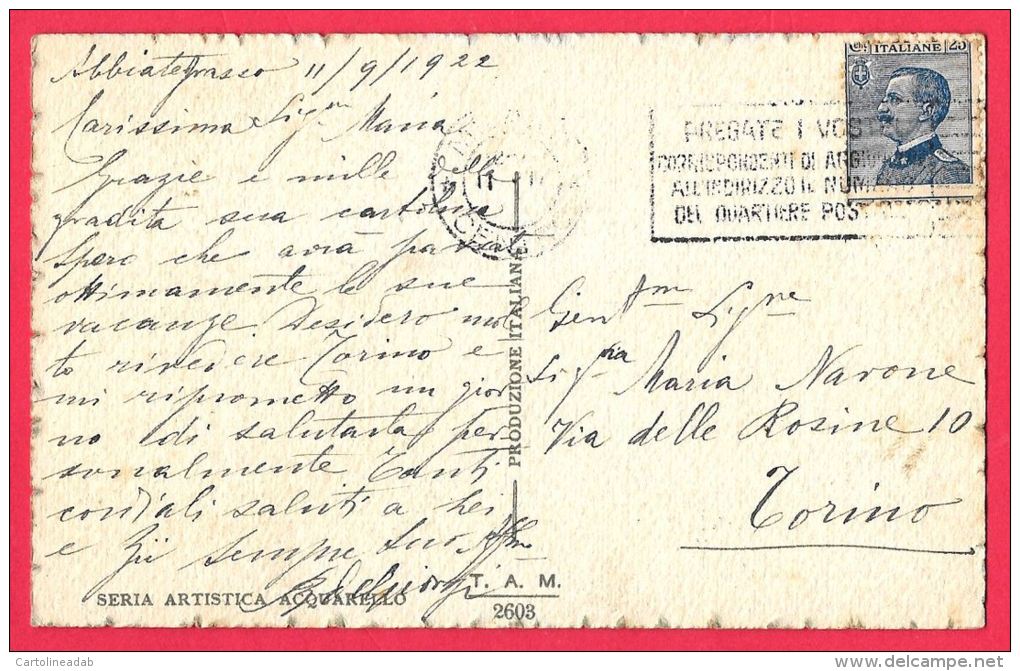 Abbiategrasso 11/9/1922
Carissima Sig.na Maria
Grazie e mille della
gradita sua cartolina
spero che avrà passate
ottimamente le sue
vacanze. Desidero mol-
to rivedere Torino e
mi riprometto un gior
no di salutarla per-
sonalmente Tanti
cordiali saluti a Lei
e Zii sempre suo
SERIA ARTISTICA ACQUARELLO
T. A. M.
2603
PRODUZIONE ITALIANA
ITALIANE 25
PREGATE I VOST
CORRISPONDENTI DI AGGIU
ALL'INDIRIZZO IL NUMERO
DEL QUARTIERE POST
Gentm Sigre
Sigria Maria Navone
Via delle Rosine 10
Torino
Cartolineadab
www.delcampe.net